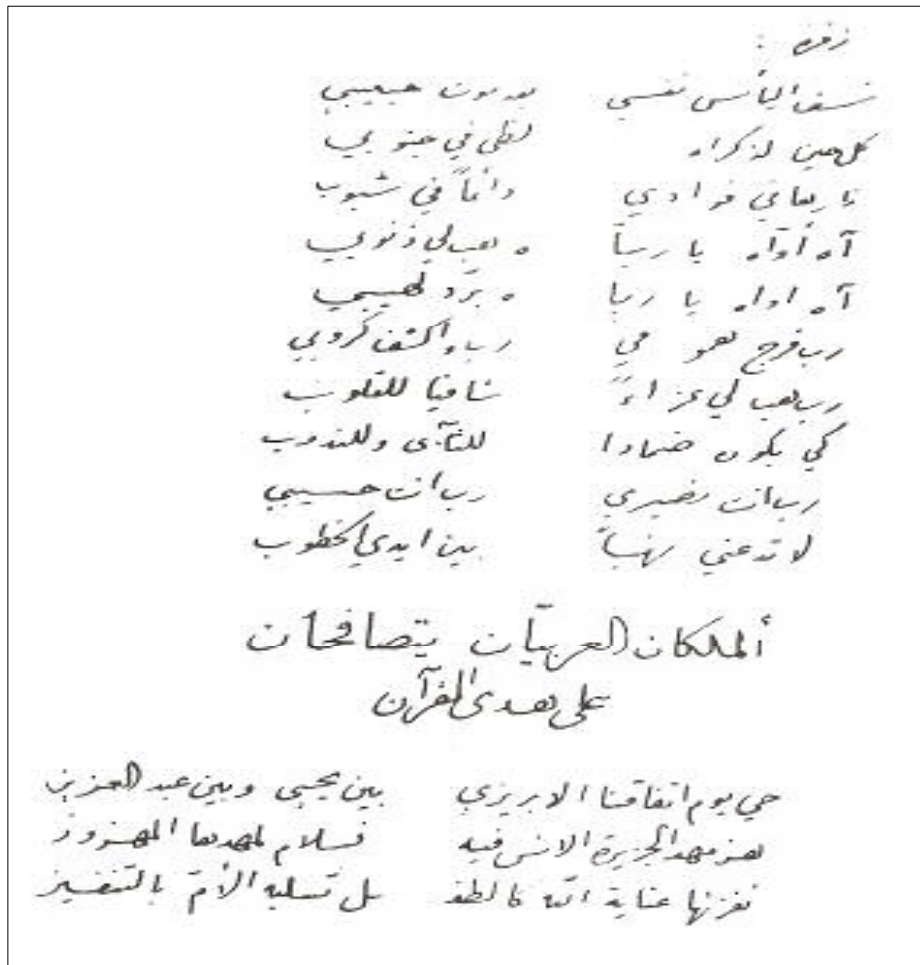 زفرة :
نسف اليأس نفسي بعد موت حبيبي
كل حين لذكراه لظى في جنوبي
نار بقلبي فؤادي دائماً في شبوب
آه أوّاه يا ربّا ه هب لي ذنوبي
آه اواه يا ربا ه برّد لهيبي
رب فرج همو مي رب واكشف كروبي
رب هب لي عزاءً شافيا للقلوب
كي يكون ضمادا للثآى وللندوب
رب انت نصيري رب انت حسيبي
لا تدعني نهباً بين ايدي الخطوب
ألملكان العربيّان يتصافحان
على هدى القرآن
حي يوم اتفاقنا الابريزي بين يحيى وبين عبد العزيز
هز مهد الجزيرة الانس فيه فسلام لمهدها المهزوز
نفزنها عناية الله كالطفل تسليه الأمّ بالتنفيز